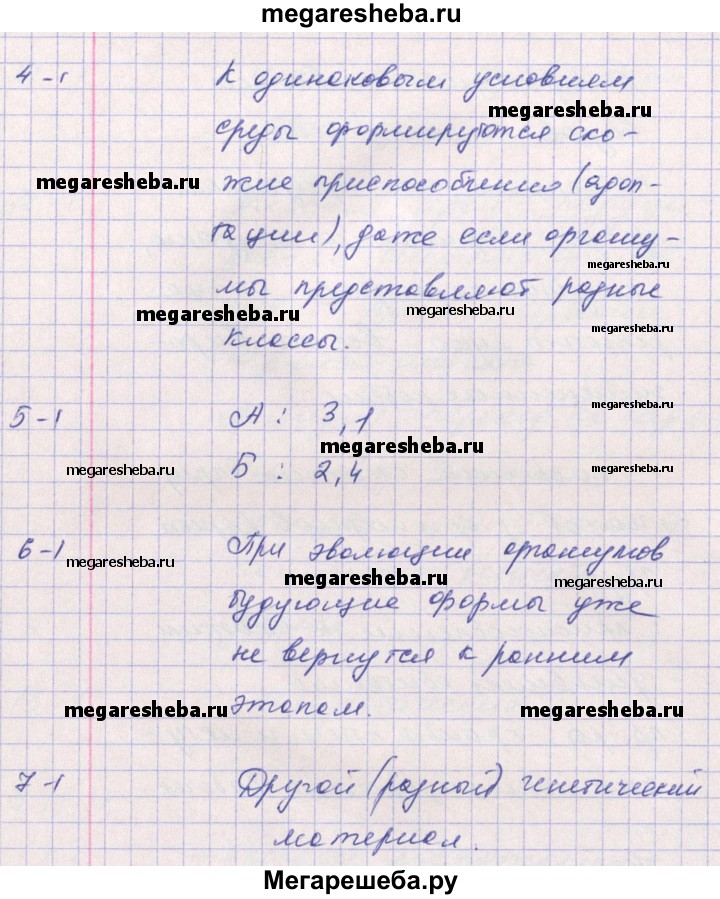 megaresheba.ru
4-1 К одинаковым условиям
megaresheba.ru
среды формируются схо-
megaresheba.ru
жие приспособления (адап-
тации), даже если организ-
megaresheba.ru
мы представляют разные
megaresheba.ru megaresheba.ru
классы. megaresheba.ru
megaresheba.ru
5-1 А: 3,1
megaresheba.ru
megaresheba.ru Б: 2,4 megaresheba.ru
6-1 При эволюции организмов
megaresheba.ru
megaresheba.ru megaresheba.ru
будующие формы уже
не вернутся к ранним
этапам.
megaresheba.ru megaresheba.ru
7-1 Другой (разный) генетический
материал.
Мегарешеба.ру